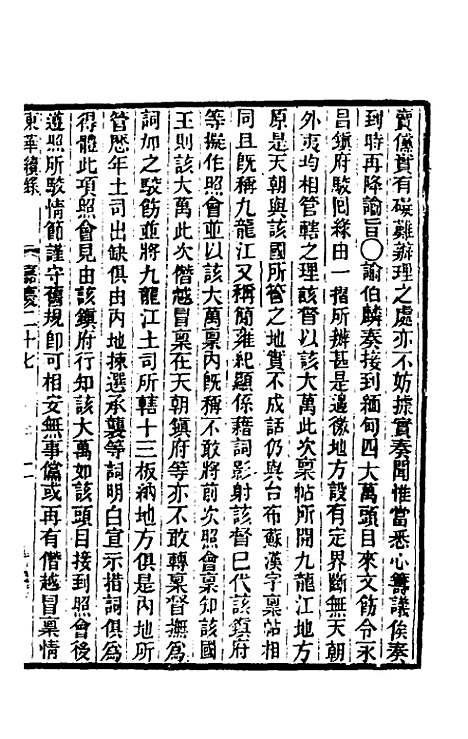 實儻實有礙難辦理之處亦不妨據實奏聞惟當悉心籌議俟奏
到時再降諭旨○諭伯麟奏接到緬甸四大萬頭目來文飭令永
昌鎮府駁回緣由一摺所辦甚是邊徼地方設有定界斷無天朝
外夷均相管轄之理該督以該大萬此次稟帖所開九龍江地方
原是天朝與該國所管之地實不成話仍與台布蘇漢字稟帖相
同且旣稱九龍江又稱簡雍紀顯係藉詞影射該督已代該鎮府
等擬作照會並以該大萬稟內旣稱不敢將前次照會稟知該國
王則該大萬此次僭越冒稟在天朝鎮府等亦不敢轉稟督撫爲
詞加之駁飭並將九龍江土司所轄十三板納地方俱是內地所
管歷年土司出缺俱由內地揀選承襲等詞明白宣示措詞俱爲
得體此項照會見由該鎮府行知該大萬如該頭目接到照會後
遵照所駁情節謹守舊規卽可相安無事儻或再有僭越冒稟情
東華續錄 嘉慶二十七